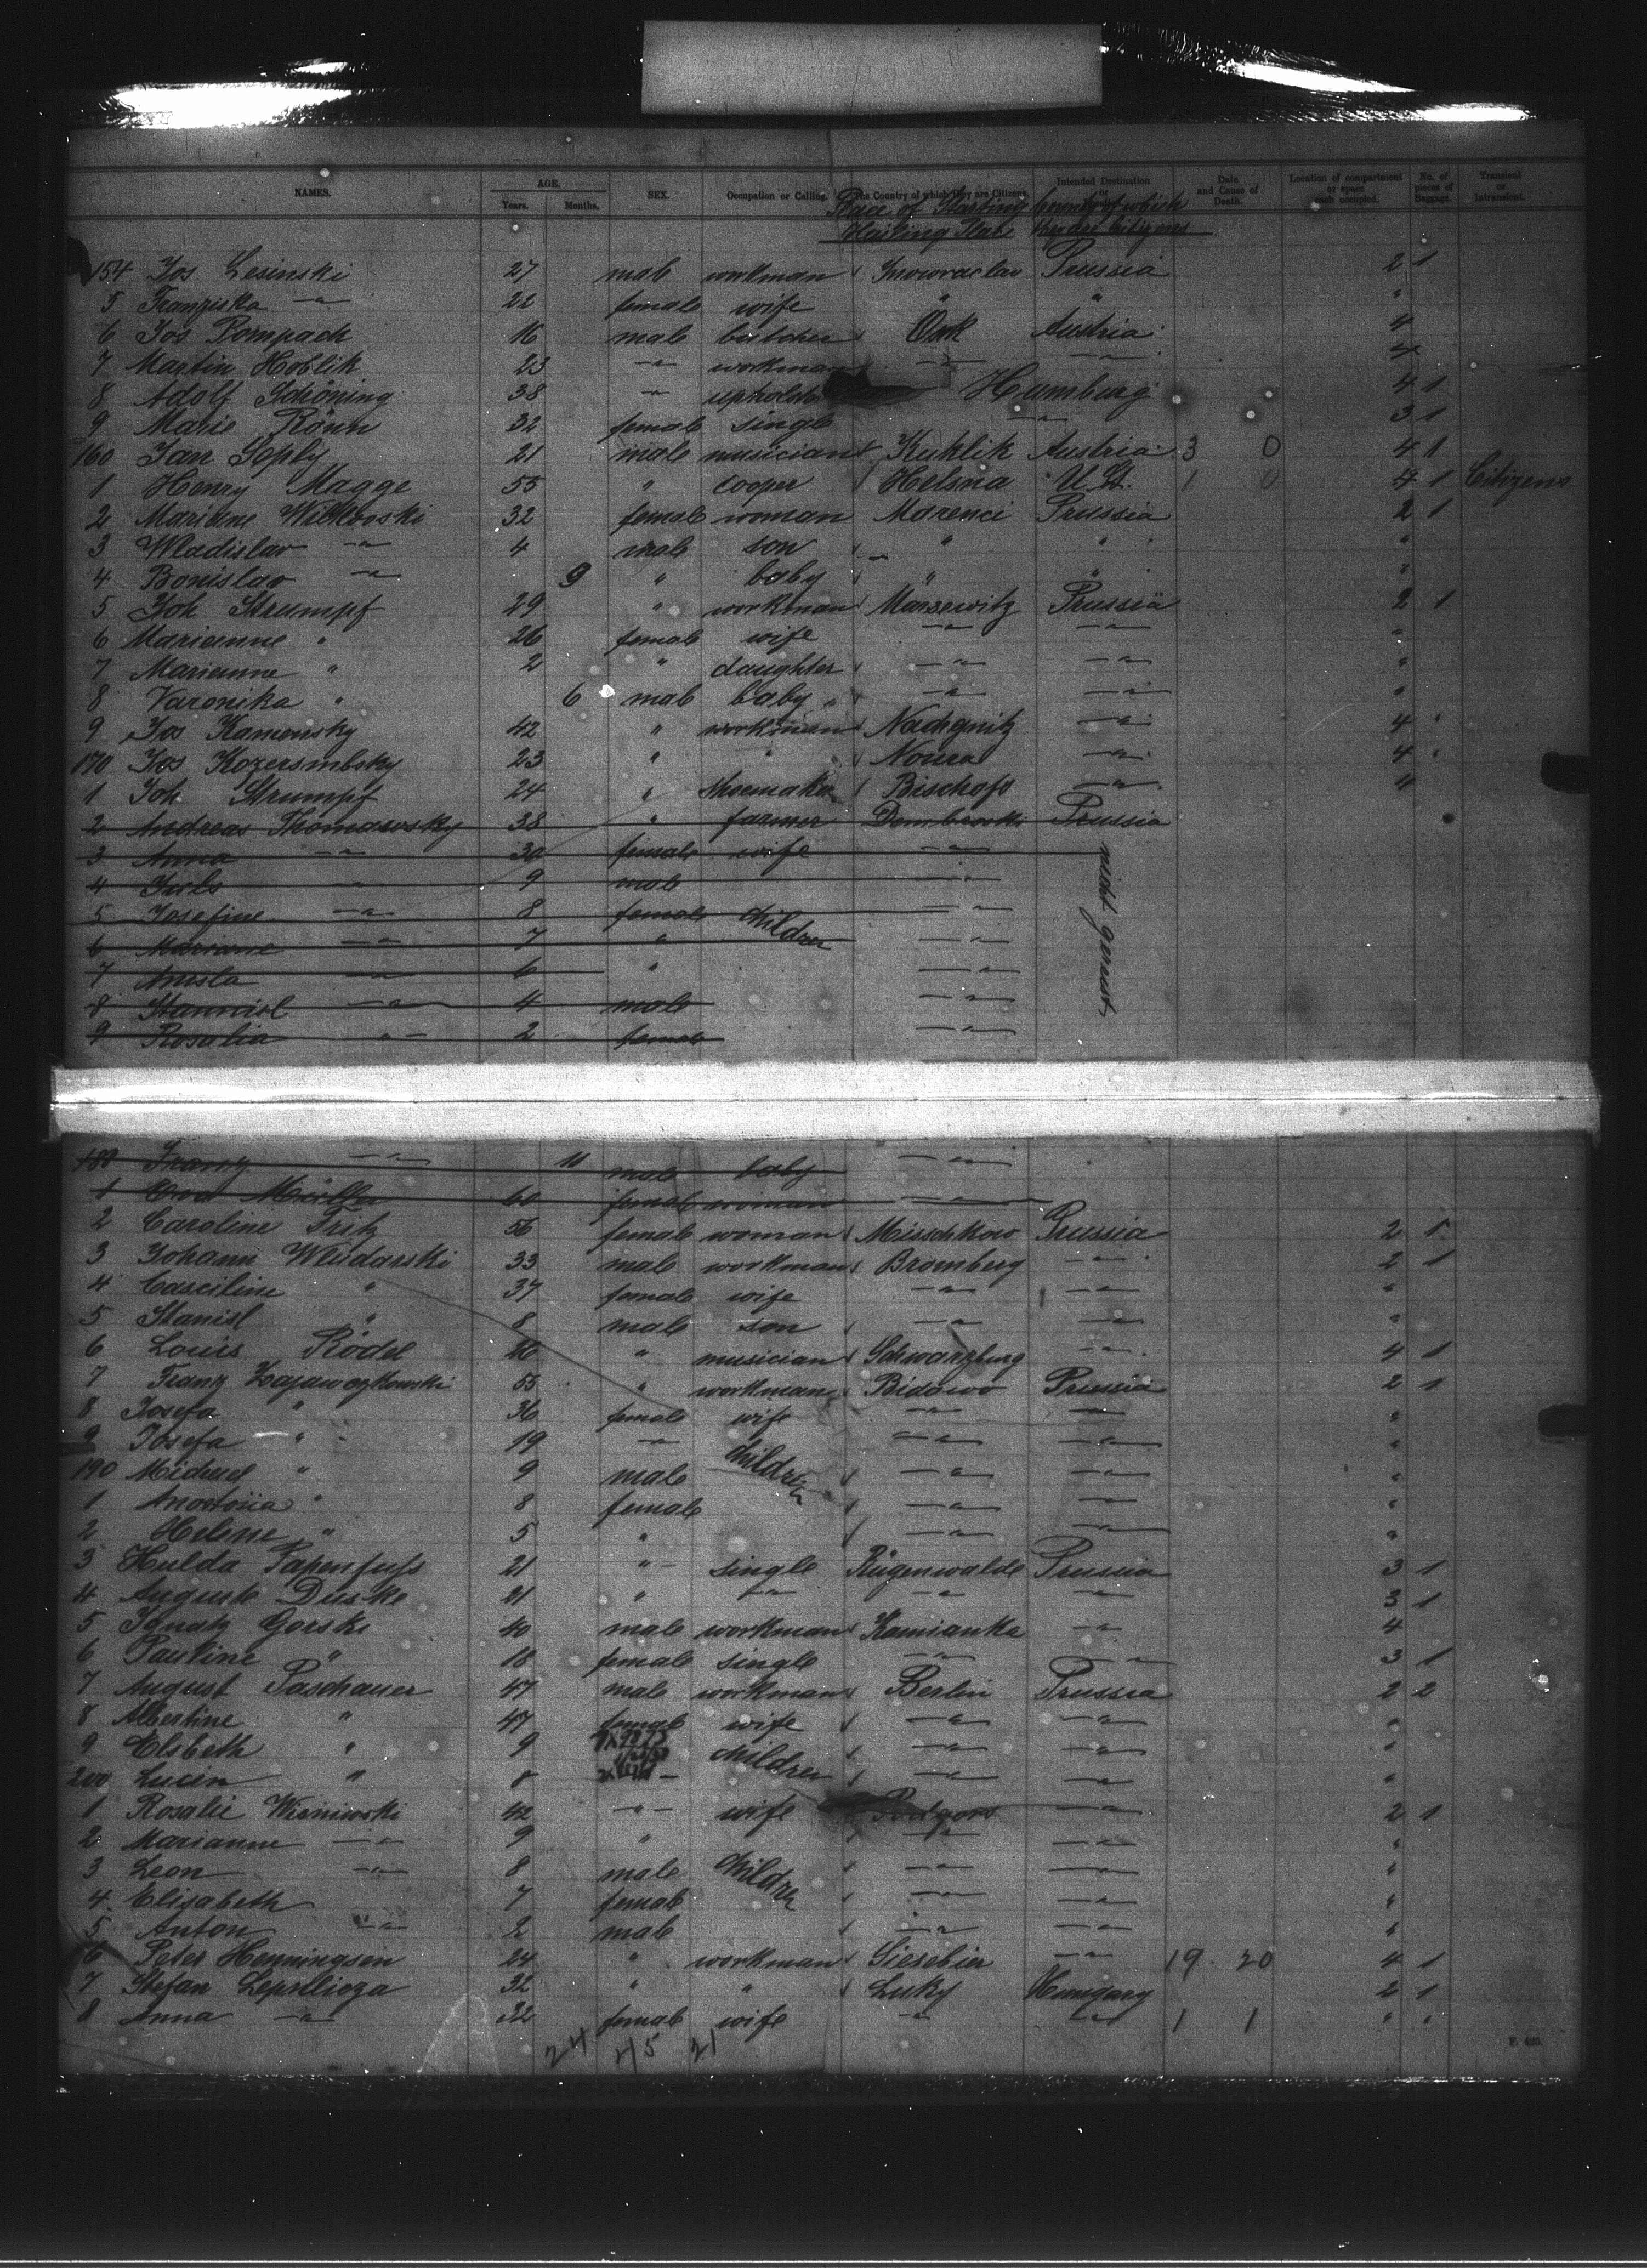 NAMES. AGE. SEX. Occupation or Calling. The Country of which they are Citizens. Intended Destination or Date and Cause of Death. Location of compartment or space each occupied. No. of pieces of Baggage. Transient or Intransient.
Years. Months.
Place of Starting
Hailing Place they are Citizens
154 Jos Lesinski 27 male workman Inowraclav Prussia 2 1
5 Franziska -"- 22 female wife " " "
6 Jos Pompach 16 male butcher Austria 4
7 Martin Hoblik 23 -"- workman -"- -"- 4
8 Adolf Schöning 38 -"- Hamburg 4 1
9 Marie Rönn 32 female single -"- 3 1
160 Jan Seply 21 male musician Kuklik Austria 3 0 4 1
1 Henry Magge 55 " cooper Helsna U. St. 1 0 4 1 Citizens
2 Mariane Wilkovski 32 female woman Morenci Prussia 2 1
3 Wladislav -"- 4 male son " " "
4 Bonislav -"- 9 " baby " " "
5 Joh Strumpf 29 " workman Marsewitz Prussia 2 1
6 Marianne " 26 female wife -"- -"- "
7 Marianne " 2 " daughter -"- -"- "
8 Varonika " 6 male baby -"- -"- "
9 Jos Kamensky 42 " workman Nachgnitz -"- 4 "
170 Jos 23 " " Noura -"- 4 "
1 Joh Strumpf 24 " shoemaker Bischofs -"- 4
2 Andreas Thomasvsky 38 " farmer Prussia
3 Anna -"- 30 female wife -"-
4 -"- 9 male -"-
5 Josefine -"- 8 female children -"-
6 Mariane -"- 7 " -"-
7 -"- 6 " -"-
8 Stannisl -"- 4 male -"-
9 Rosalia -"- 2 female -"-
nicht gereist
180 Franz -"- male baby -"-
1 Eva Müller 60 female woman
2 Caroline Fritz 56 female woman Mieschkow Prussia 2 1
3 Johann Wludarski 33 male workman Bromberg -"- 2 1
4 Casciline " 37 female wife -"- -"- "
5 Stanisl " 8 male son -"- -"- "
6 Louis Rödel 26 " musician Schwarzburg -"- 4 1
7 Franz 55 " workman Bidowo Prussia 2 1
8 Josefa " 36 female wife -"- -"- "
9 Josefa " 19 -"- children -"- -"- "
190 Michael " 9 male -"- -"- "
1 " 8 female -"- -"- "
2 Helene " 5 " -"- -"- "
3 Hulda Papenfuss 21 "- single Rügenwalde Prussia 3 1
4 Auguste Duske 21 " -"- -"- -"- 3 1
5 Ignatz Gorski 40 male workman Kamianka -"- 4
6 Pauline " 18 female single -"- -"- 3 1
7 August Paschauer 47 male workman Berlin Prussia 2 2
8 Albertine " 47 female wife -"- -"- "
9 Elsbeth " 9 children -"- -"- "
200 Lucin " 8 -"- -"- "
1 Rosalie Wisniwski 42 -"- wife Podgors -"- 2 1
2 Marianne -"- 9 " -"- -"- "
3 Leon -"- 8 male children -"- -"- "
4 Elisabeth 7 female -"- -"- "
5 Anton -"- 2 male -"- -"- "
6 Peter Henningsen 24 " workman -"- 19 20 4 1
7 Stefan 32 " " Luky Hungary 2 1
8 Anna -"- 32 female wife -"- -"- 1 1 " "
24 45 21